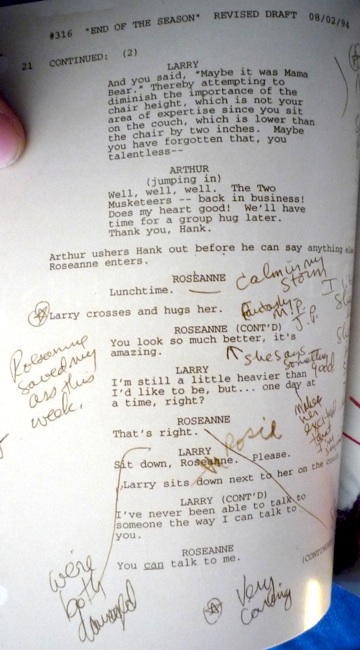 #316 "END OF THE SEASON" REVISED DRAFT 08/02/94
21 CONTINUED: (2)
LARRY
And you said, "Maybe it was Mama
Bear." Thereby attempting to
diminish the importance of the
chair height, which is not your
area of expertise since you sit
on the couch, which is lower than
the chair by two inches. Maybe
you have forgotten that, you
talentless--
ARTHUR
(jumping in)
Well, well, well. The Two
Musketeers -- back in business!
Does my heart good! We'll have
time for a group hug later.
Thank you, Hank.
Arthur ushers Hank out before he can say anything
Roseanne enters.
ROSEANNE
Lunchtime.
calm in my
storm
Larry crosses and hugs her.
ROSEANNE (CONT'D)
You look so much better, it's
amazing.
she says something
good
Roseanne
saved my
ass this
week.
LARRY
I'm still a little heavier than
I'd like to be, but... one day at
a time, right?
make
her
ROSEANNE
That's right.
LARRY
Sit down, Roseanne. Please.
Rosie
Larry sits down next to her on the couch
LARRY (CONT'D)
I've never been able to talk to
someone the way I can talk to
you.
ROSEANNE
You can talk to me.
we're
both
very
caring